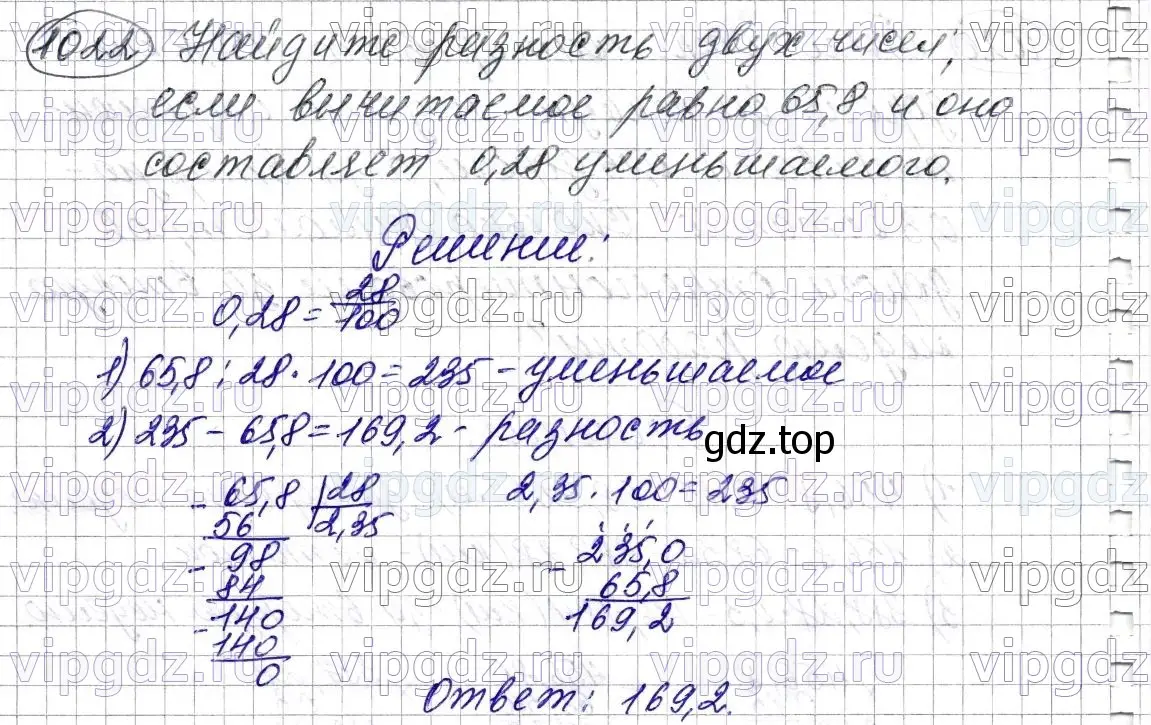 1022 Найдите разность двух чисел,
если вычитаемое равно 65,8 и оно
составляет 0,28 уменьшаемого.
Решение:
0,28 = 28/100
1) 65,8 : 28 · 100 = 235 - уменьшаемое
2) 235 - 65,8 = 169,2 - разность
gdz.top
- 65,8 | 28
56 2,35
- 98
84
- 140
140
0
2,35 · 100 = 235
- 235,0
65,8
169,2
Ответ: 169,2.
vipgdz.ru